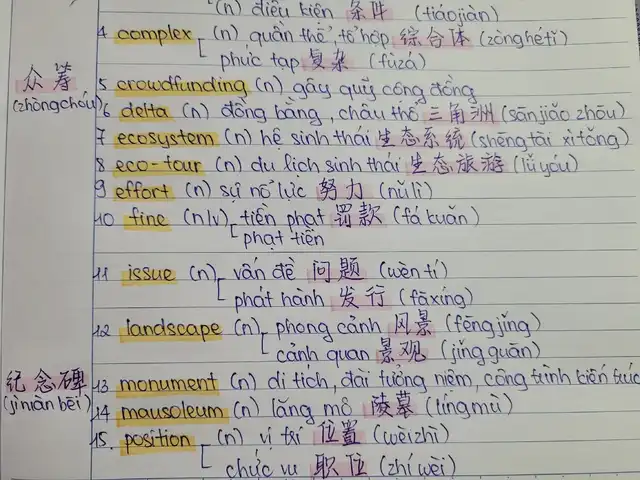 (n) điều kiện 条件 (tiáojiàn)
4 complex (n) quần thể, tổ hợp 综合体 (zònghétǐ)
phức tạp 复杂 (fùzá)
众筹 (zhòngchóu)
5 crowdfunding (n) gây quỹ cộng đồng
6 delta (n) đồng bằng, châu thổ 三角洲 (sānjiǎo zhōu)
7 ecosystem (n) hệ sinh thái 生态系统 (shēng tài xì tǒng)
8 eco-tour (n) du lịch sinh thái 生态旅游 (lǚ yóu)
9 effort (n) sự nỗ lực 努力 (nǔlì)
10 fine (n/v) tiền phạt 罚款 (fá kuǎn)
phạt tiền
11 issue (n) vấn đề 问题 (wèn tí)
phát hành 发行 (fāxíng)
12 landscape (n) phong cảnh 风景 (fēng jǐng)
cảnh quan 景观 (jǐng guān)
纪念碑 (jìniàn bēi)
13 monument (n) di tích, đài tưởng niệm, công trình kiến trúc
14 mausoleum (n) lăng mộ 陵墓 (língmù)
15. position (n) vị trí 位置 (wèizhì)
chức vụ 职位 (zhí wèi)